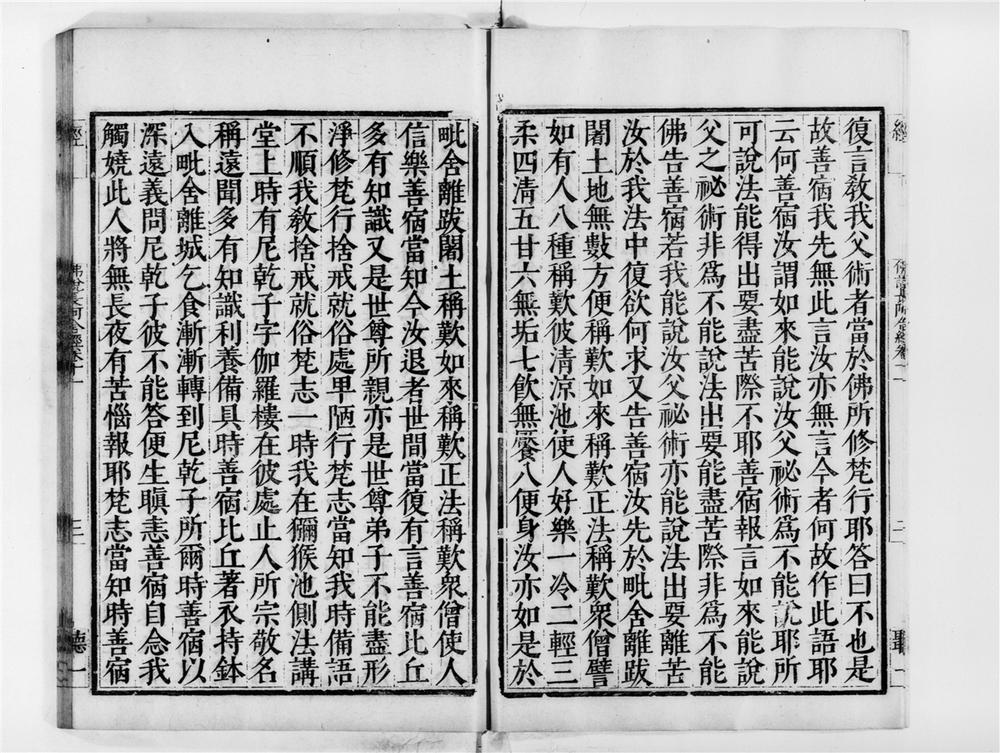 復言教我父術者當於佛所修梵行耶答曰不也是
故善宿我先無此言汝亦無言今者何故作此語耶
云何善宿汝謂如來能說汝父祕術為不能說耶所
可說法能得出要盡苦際不耶善宿報言如來能說
父之祕術非為不能說法出要能盡苦際非為不能
佛告善宿若我能說汝父祕術亦能說法出要離苦
汝於我法中復欲何求又告善宿汝先於毗舍離跋
闍土地無數方便稱歎如來稱歎正法稱歎眾僧譬
如有人八種稱歎彼清涼池使人好樂一冷二輕三
柔四清五甘六無垢七飲無饜八便身汝亦如是於
毗舍離跋闍土稱歎如來稱歎正法稱歎眾僧使人
信樂善宿當知今汝退者世間當復有言善宿比丘
多有知識又是世尊所親亦是世尊弟子不能盡形
淨修梵行捨戒就俗處卑陋行梵志當知我時備語
不順我教捨戒就俗梵志一時我在獼猴池側法講
堂上時有尼乾子字伽羅樓在彼處止人所宗敬名
稱遠聞多有知識利養備具時善宿比丘著衣持鉢
入毗舍離城乞食漸漸轉到尼乾子所爾時善宿以
深遠義問尼乾子彼不能答便生瞋恚善宿自念我
觸嬈此人將無長夜有苦惱報耶梵志當知時善宿
經
三
聽一